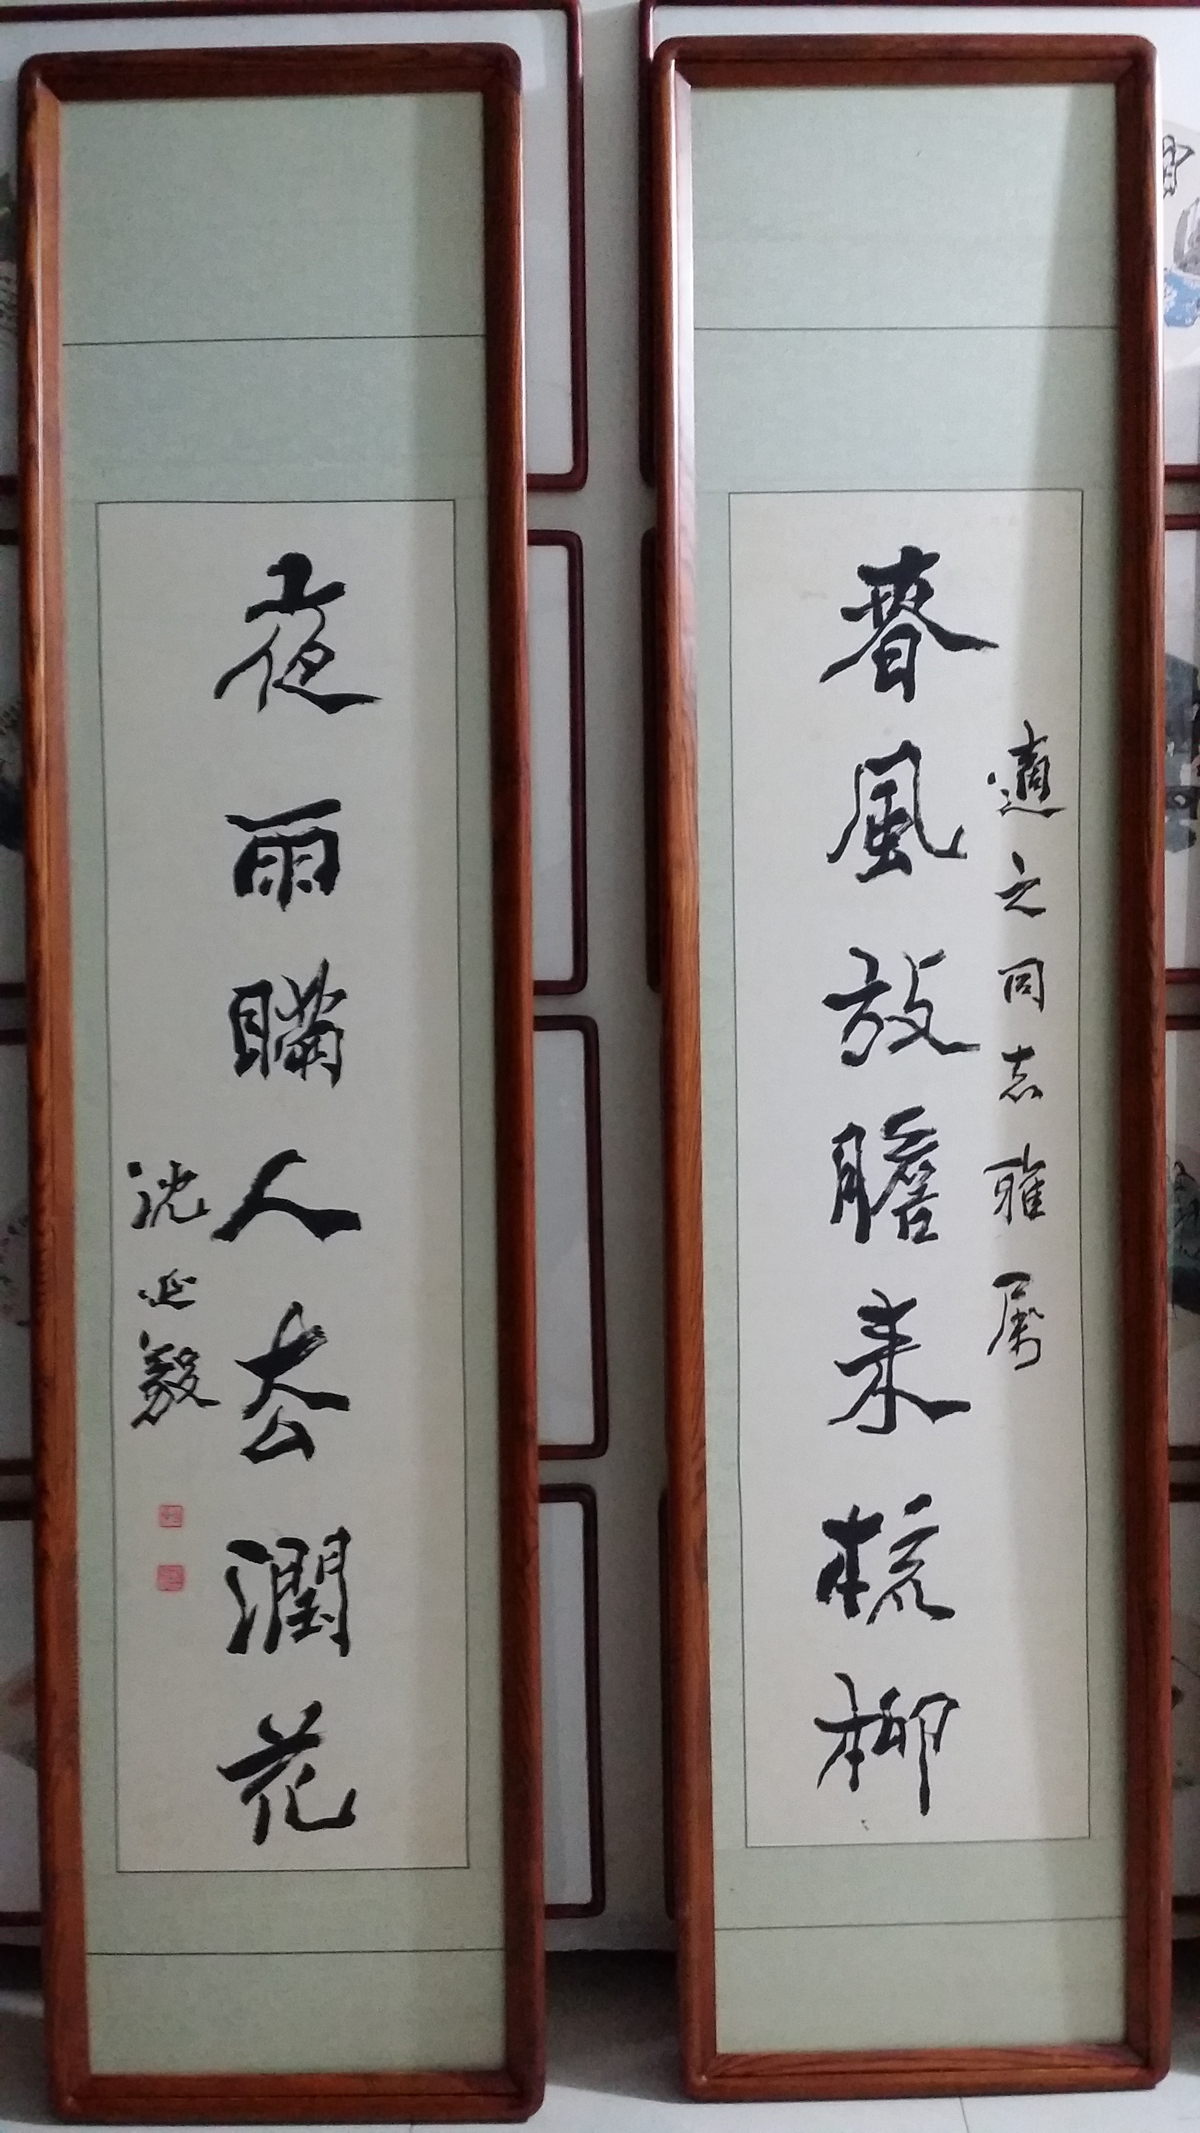 適之同志雅属
春風放膽来梳柳
夜雨瞞人去潤花
沈延毅